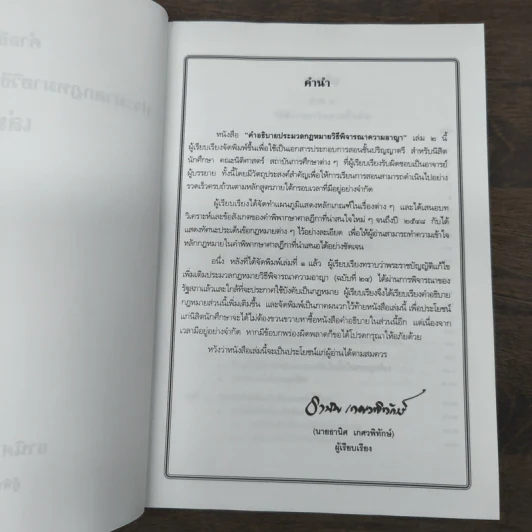 คำนำ
หนังสือ "คำอธิบายประมวลกฎหมายวิธีพิจารณาความอาญา" เล่ม ๒ นี้
ผู้เรียบเรียงจัดพิมพ์ขึ้นเพื่อใช้เป็นเอกสารประกอบการสอนชั้นปริญญาตรี สำหรับนิสิต
นักศึกษา คณะนิติศาสตร์ สถาบันการศึกษาต่าง ๆ ที่ผู้เรียบเรียงรับผิดชอบเป็นอาจารย์
ผู้บรรยาย ทั้งนี้โดยมีวัตถุประสงค์สำคัญเพื่อให้การเรียนการสอนสามารถดำเนินไปอย่าง
รวดเร็วครบถ้วนตามหลักสูตรภายใต้กรอบเวลาที่มีอยู่อย่างจำกัด
ผู้เรียบเรียงได้จัดทำแผนภูมิแสดงหลักเกณฑ์ในเรื่องต่าง ๆ และได้เสนอบท
วิเคราะห์และข้อสังเกตของคำพิพากษาศาลฎีกาที่น่าสนใจใหม่ ๆ จนถึงปี ๒๕๔๘ กับได้
แสดงทัศนะประเด็นข้อกฎหมายต่าง ๆ ไว้อย่างละเอียด เพื่อให้ผู้อ่านสามารถทำความเข้าใจ
หลักกฎหมายในคำพิพากษาศาลฎีกาที่นำเสนอได้อย่างชัดเจน
อนึ่ง หลังที่ได้จัดพิมพ์เล่มที่ ๑ แล้ว ผู้เรียบเรียงทราบว่าพระราชบัญญัติแก้ไข
เพิ่มเติมประมวลกฎหมายวิธีพิจารณาความอาญา (ฉบับที่ ๒๔) ได้ผ่านการพิจารณาของ
รัฐสภาแล้วและใกล้ที่จะประกาศใช้บังคับเป็นกฎหมาย ผู้เรียบเรียงจึงได้เรียบเรียงคำอธิบาย
กฎหมายส่วนนี้เพิ่มเติมขึ้น และจัดพิมพ์เป็นภาคผนวกไว้ท้ายหนังสือเล่มนี้ เพื่อประโยชน์
แก่นิสิตนักศึกษาจะได้ไม่ต้องขวนขวายหาซื้อหนังสือคำอธิบายในส่วนนี้อีก แต่เนื่องจาก
เวลามีอยู่อย่างจำกัด หากมีข้อบกพร่องผิดพลาดก็ขอได้โปรดกรุณาให้อภัยด้วย
หวังว่าหนังสือเล่มนี้จะเป็นประโยชน์แก่ผู้อ่านได้ตามสมควร
ธานิศ เกศวพิทักษ์
(นายธานิศ เกศวพิทักษ์)
ผู้เรียบเรียง